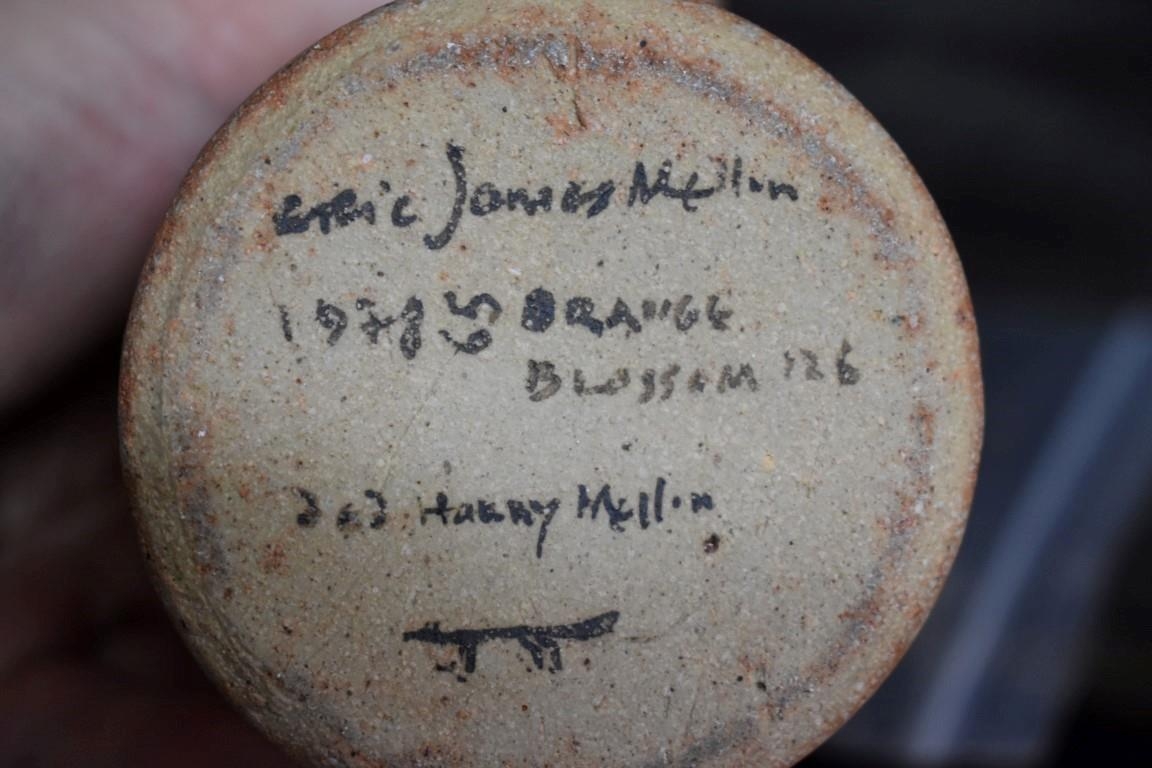 Eric James Mellon
1978 65 ORANGE
BLOSSOM 126
Harry Mellon